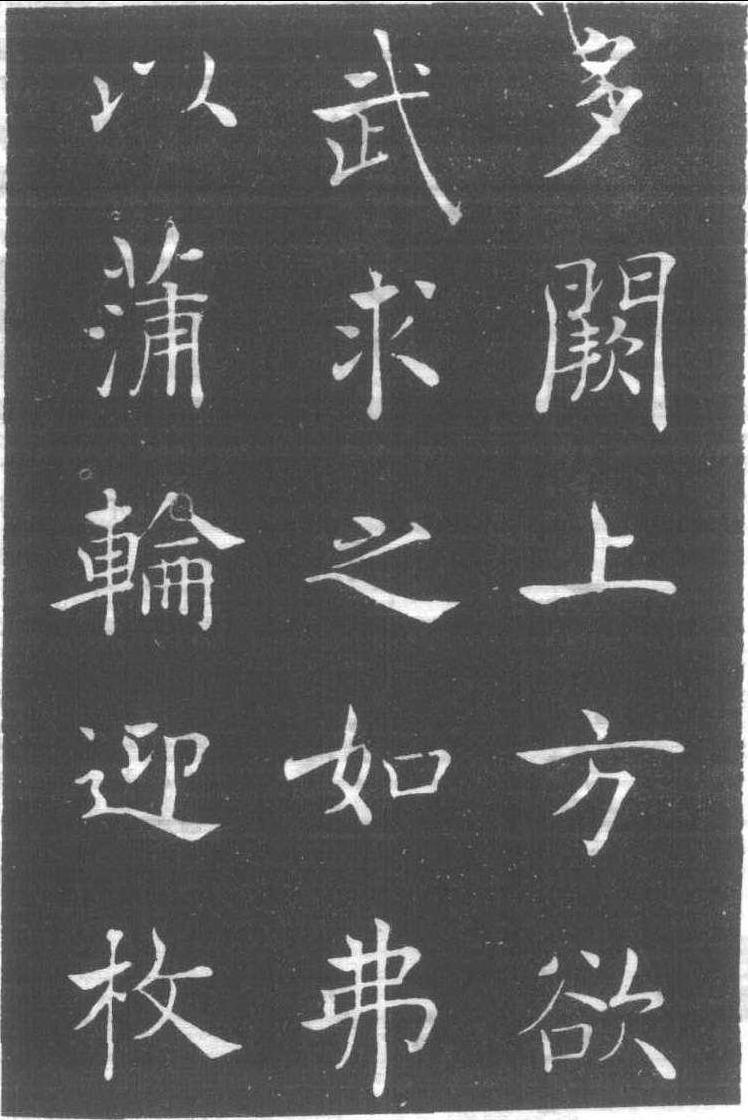 多闕上方欲
武求之如弗
以蒲輪迎枚